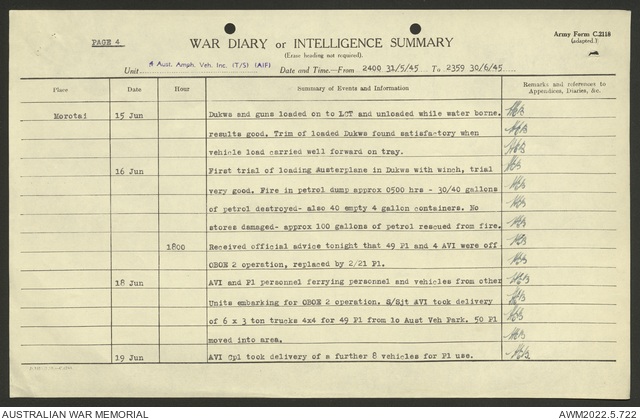 PAGE 4
WAR DIARY or INTELLIGENCE SUMMARY
Army Form C.2118
(adapted.)
(Erase heading not required).
Unit Aust. Amph. Veh. Inc. (T/S) (AIF) Date and Time.—From 2400 31/5/45 To 2359 30/6/45
Place Date Hour Summary of Events and Information Remarks and references to Appendices, Diaries, &c.
Morotai 15 Jun Dukws and guns loaded on to LCT and unloaded while water borne.
results good. Trim of loaded Dukws found satisfactory when
vehicle load carried well forward on tray.
16 Jun First trial of loading Austerplane in Dukws with winch, trial
very good. Fire in petrol dump approx 0500 hrs - 30/40 gallons
of petrol destroyed- also 40 empty 4 gallon containers. No
stores damaged- approx 100 gallons of petrol rescued from fire.
1800 Received official advice tonight that 49 Pl and 4 AVI were off
OBOE 2 operation, replaced by 2/21 Pl.
18 Jun AVI and Pl personnel ferrying personnel and vehicles from other
Units embarking for OBOE 2 operation. S/Sjt AVI took delivery
of 6 x 3 ton trucks 4x4 for 49 Pl from 10 Aust Veh Park. 50 Pl
moved into area.
19 Jun AVI Cpl took delivery of a further 8 vehicles for Pl use.
AUSTRALIAN WAR MEMORIAL
AWM2022.5.722